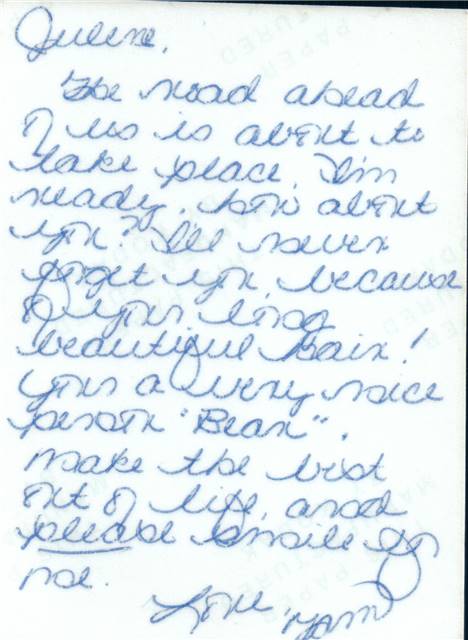 Julene,
The road ahead
of us is about to
take place. I'm
ready, how about
you? I'll never
forget you, because
of your long
beautiful hair!
Your a very nice
person "Bean".
Make the best
out of life, and
please smile for
me.
Love,